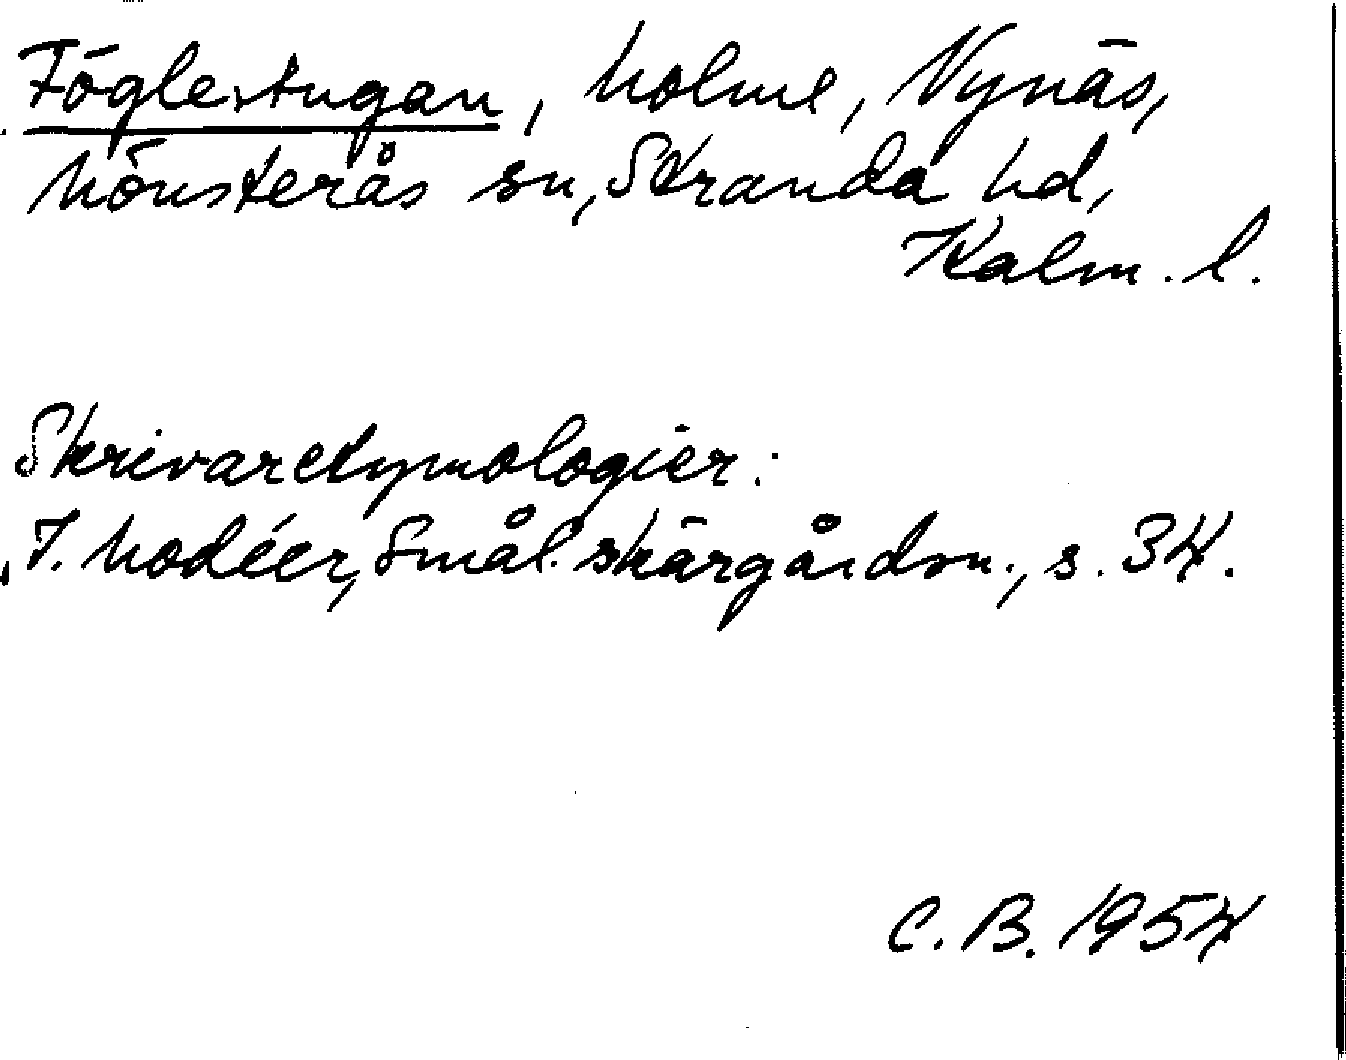 Föglestugan, holme, Vynäs,
Mönsterås sn, Stranda hd,
Kalm. l.
Skrivaretymologier:
I. Modéer, Smål. skärgårdsn., s. 34.
C. B. 1954